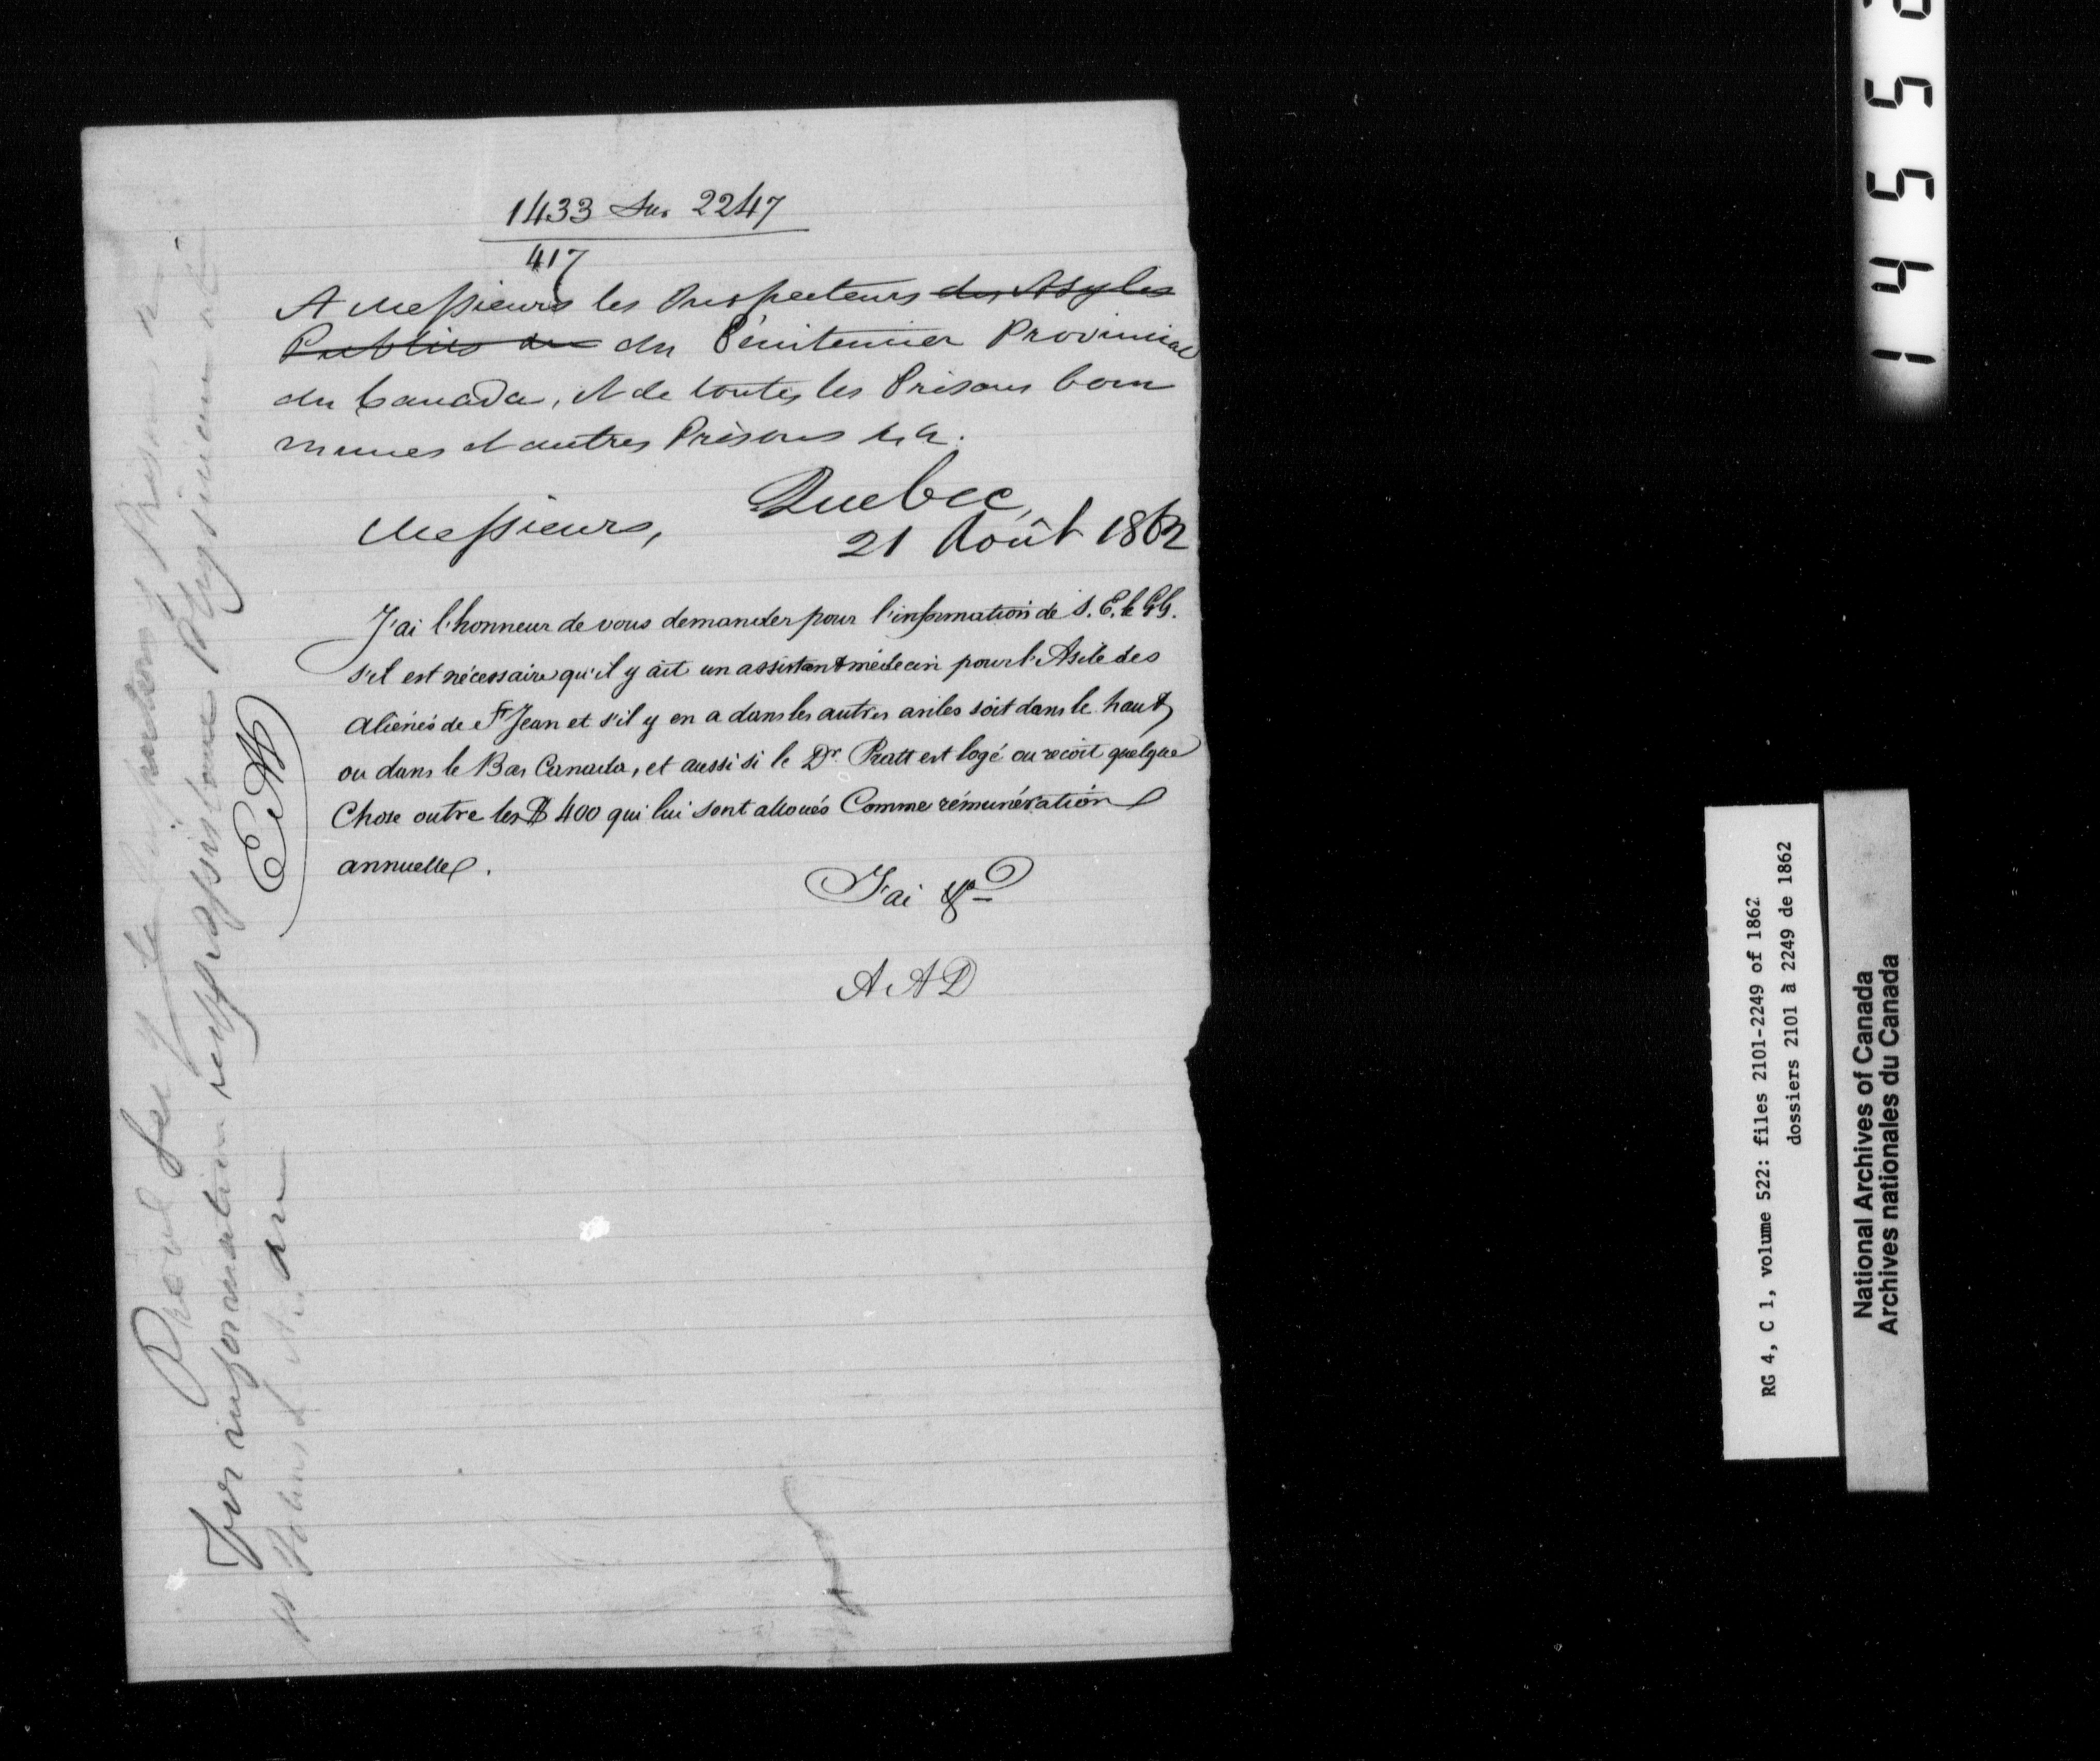 1433 Sur 2247
417
A Messieurs les Inspecteurs des Asyles
Publics du du Pénitencier Provincial
du Canada, et de toutes les Prisons Com
munes et autres Prisons &c.
Quebec,
Messieurs,
21 Août 1862
J'ai l'honneur de vous demander pour l'information de S. E. le G.G.
s'il est nécessaire qu'il y ait un assistant médecin pour l'Asile des
aliénés de St Jean et s'il y en a dans les autres asiles soit dans le haut
ou dans le Bas Canada, et aussi si le Dr. Pratt est logé ou recoit quelque
Chose outre les $ 400 qui lui sont alloués Comme rémunération
annuelle.
J'ai &c
A A D
Provl Secy to Inspectors of Prisons &c
For information respg Assistant Physician at
St Johns L. A.
EAM
14552
RG 4, C 1, volume 522: files 2101-2249 of 1862
dossiers 2101 à 2249 de 1862
National Archives of Canada
Archives nationales du Canada